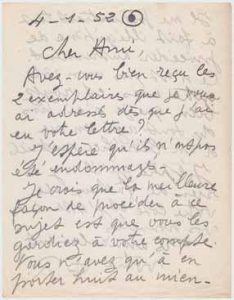 4-1-52 6
Cher Ami,
Avez-vous bien reçu les
2 exemplaires que je vous
ai adressés dès que j'ai
eu votre lettre?
J'espère qu'il n'a pas
été endommagé.
Je crois que la meilleure
façon de procéder à ce
sujet est que vous les
gardiez à votre compte.
Vous n'avez qu'à en
porter huit au mien-